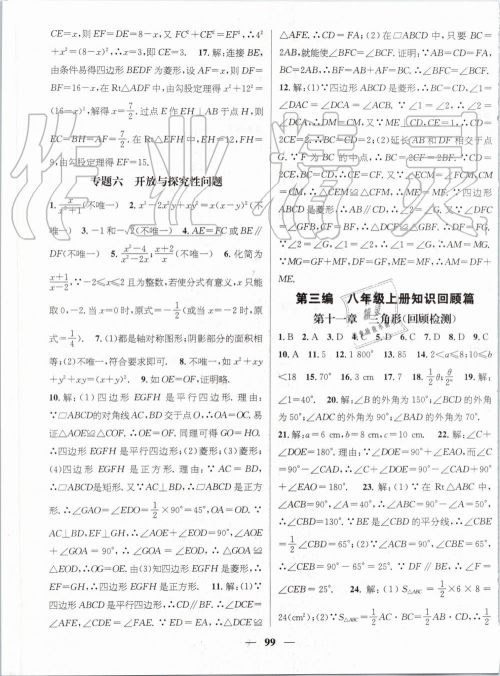 CE=x, ∴EF=DE=8-x, 又FC²+CE²=EF², ∴4²
+x²=(8-x)², ∴x=3, 即CE=3. 17. 解:连接BE,
由条件易得四边形BEDF为菱形, 设AF=x, 则DF=
BF=16-x, 在Rt△ADF中, 由勾股定理得x²+12²=
(16-x)², 解得x=7/2. 过点E作EH⊥AB于点H, 则
EC=BH=AF=7/2, 在Rt△EFH中, EH=12, FH=
9, 由勾股定理得EF=15.
专题六 开放与探究性问题
1. x/(x²+1)(不唯一) 2. x²-2x²y+xy²=x(x-y)²(不
唯一) 3. -1和-√2(不唯一) 4. AE=FC或BE∥
DF(不唯一) 5. (x²-4)/(x²-2x), (x+2)/x(不唯一) 6. 化简为
(x+1)/x, ∵-2≤x≤2且为整数, 若使分式有意义, x只能
取-2或1, 当x=-2时, 原式=-1/(-2)=1/2 (或当x=1
时, 原式=2) 7. (1)都是轴对称图形; 阴影部分的面积相
等; (2)不唯一, 符合题意即可. 8. 不唯一, 如x²+xy
+y²+xy=x²+2xy+y². 9. 如OE=OF, 证明略.
10. 解: (1)四边形EGFH是平行四边形. 理由:
∵□ABCD的对角线AC, BD交于点O, ∴OA=OC, 易
证△AOE≌△COF. ∴OE=OF. 同理可得GO=HO.
∴四边形EGFH是平行四边形; (2)菱形; (3)菱形;
(4)四边形EGFH是正方形. 理由: ∵AC=BD,
∴□ABCD是矩形. 又AC⊥BD, ∴□ABCD是正方
形. ∴∠GAO=∠EDO=1/2×90°=45°, OA=OD. ∵
AC⊥BD, EF⊥GH, ∴∠AOE+∠EOD=90°, ∠AOE
+∠GOA=90°, ∴∠GOA=∠EOD, ∴△GOA≌
△EOD, ∴OG=OE. ∵四边形EGFH是菱形, ∴
EF=GH, ∴四边形EGFH是正方形. 11. 解: (1)∵
四边形ABCD是平行四边形, ∴CD∥BF, ∴∠DCE=
∠AFE, ∠CDE=∠FAE, ∵E为AD中点, ∴△DCE≌
△AFE. ∴CD=FA; (2)在□ABCD中, 只要BC=
2AB, 就能使∠BFC=∠BCF. 证明: ∵AB=CD=FA,
BC=2AB, ∴BC=AB+AF=BF. ∴∠BFC=∠BCF.
12. 解: (1)∵四边形ABCD是菱形, ∴BC=CD, ∠1=
∠DAC=∠DCA=∠ACB. ∵∠1=∠2, ∴∠2=
∠DCA, ∴DM=CM, 又ME⊥CD, CE=1, ∴CD=
2CE=2. ∴BC=CD=2; (2)延长AB和DF相交于点
G. ∵F为BC的中点, ∴BC=2CF=2BF. ∵CD=
2CE, BC=CD. ∴CE=CF. 又∠MCE=∠MCF,
CM=CM, ∴△CEM≌△CFM, ∴ME=MF. 四边形
ABCD是菱形, ∴AB∥CD. ∴∠DCF=∠GBF, ∠2=
∠G. 又BF=CF, ∴△CDF≌△BGF, ∴DF=GF.
∵∠2=∠G, ∠2=∠1, ∴∠1=∠G, ∴AM=MG.
∵MG=GF+MF, DF=GF, ME=MF, ∴AM=DF+
ME.
第三编 八年级上册知识回顾篇
第十一章 三角形(回顾检测)
10. A 11. 5 12. 1 800° 13. 85 14. 2<a≤8; 10≤b
≤18 15. 70° 16. 3 cm 17. 7
20. 解: ∠B的外角为150°, ∠BCD的外角
为50°, ∠ADC的外角为90°, ∠BAD的外角为70°.
21. 解: a=6 cm, b=8 cm, c=3 cm 22. 解: ∠C+
∠DOE=180°. 理由: ∵∠DOE=∠EAO+90°, 而∠C=
90°-∠CAD, ∴∠C+∠DOE=90°-∠CAD+90°
+∠EAO=180°. 23. 解: (1)∵在Rt△ABC中,
∠ACB=90°, ∠A=40°, ∴∠ABC=90°-∠A=50°,
∴∠CBD=130°. ∵BE是∠CBD的平分线, ∴∠CBE=
1/2∠CBD=65°; (2)∵∠ACB=90°, ∠CBE=65°,
∴∠CEB=90°-65°=25°. ∵DF∥BE, ∴∠F=
∠CEB=25°. 24. 解: (1)S△ABC=1/2×6×8=
24(cm²); (2)∵S△ABC=1/2AC·BC=1/2AB·CD, ∴CD=
99